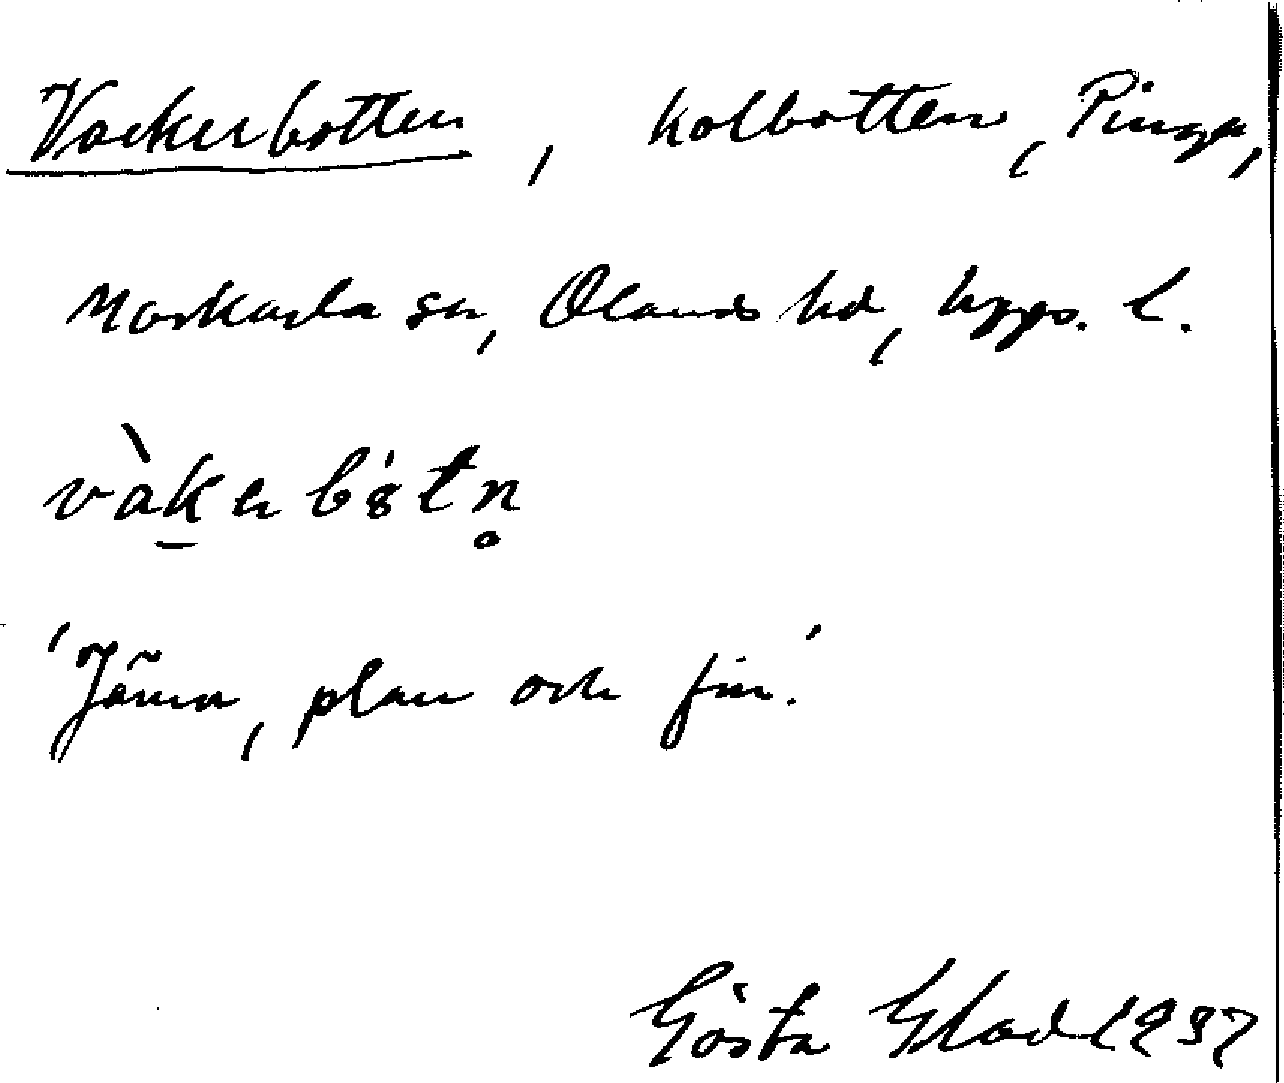 Vackerbotten, kolbotten, Pinga,
Morkarla sn, Olands hd, Upps. l.
vàkerbòtn̥
'Jämn, plan och fin.'
Gösta Glad 1937